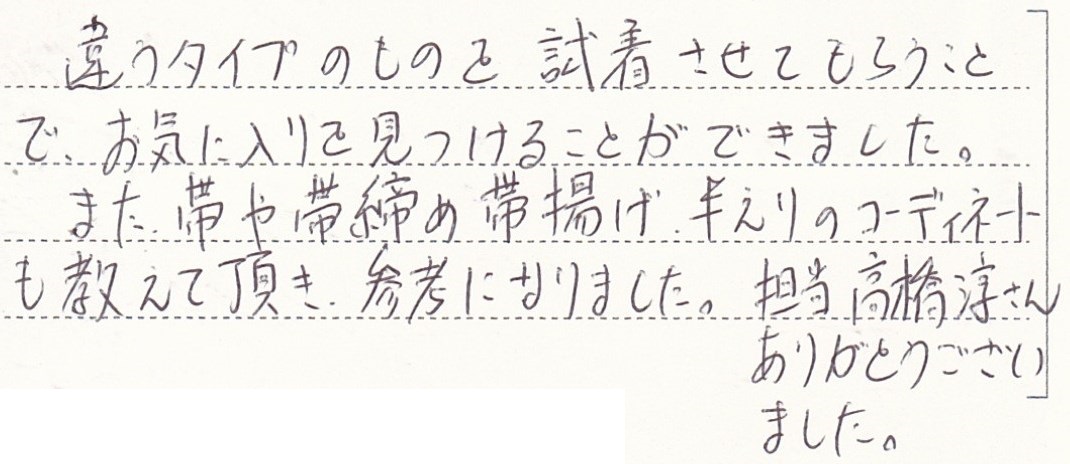 違うタイプのものを試着させてもらうこと
で、お気に入りを見つけることができました。
また、帯や帯締め帯揚げ、半えりのコーディネート
も教えて頂き、参考になりました。担当高橋淳さん
ありがとうござい
ました。